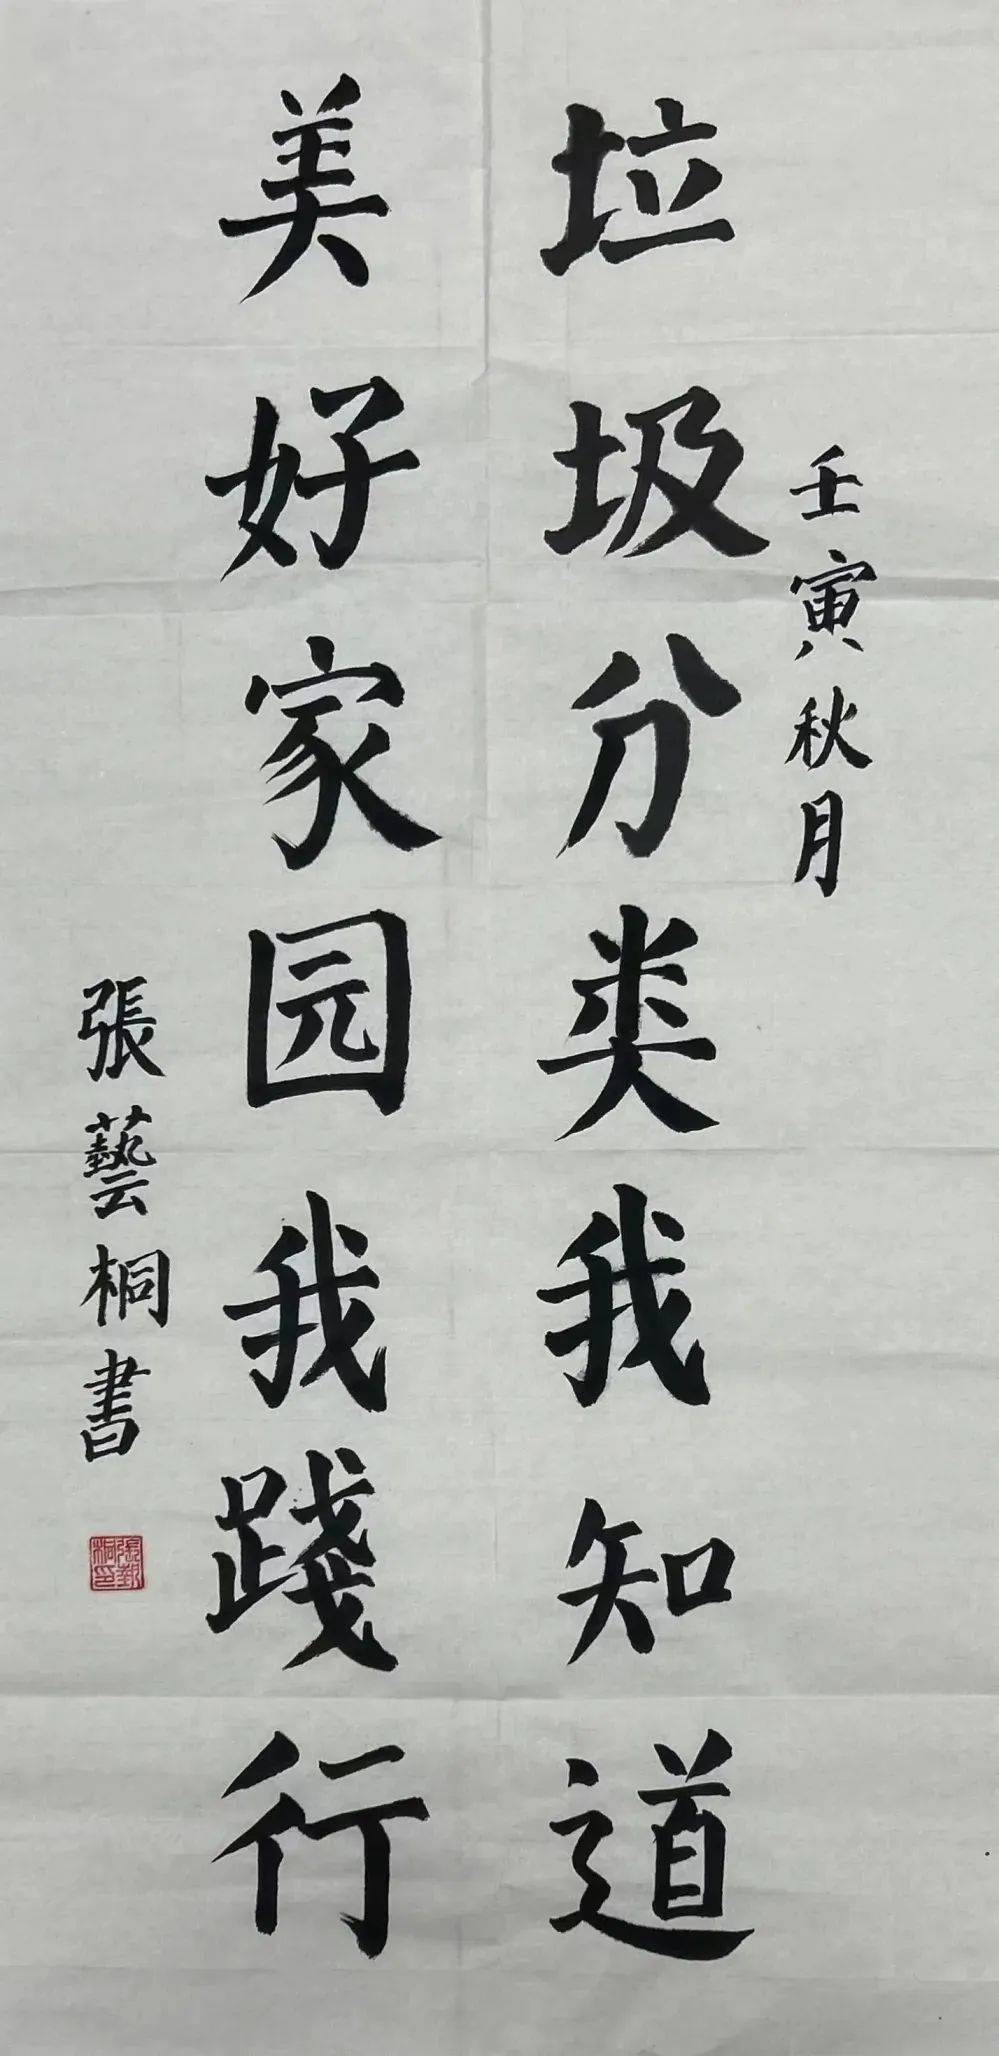 壬寅秋月
垃圾分类我知道
美好家园我踐行
張藝桐書
張艺桐印